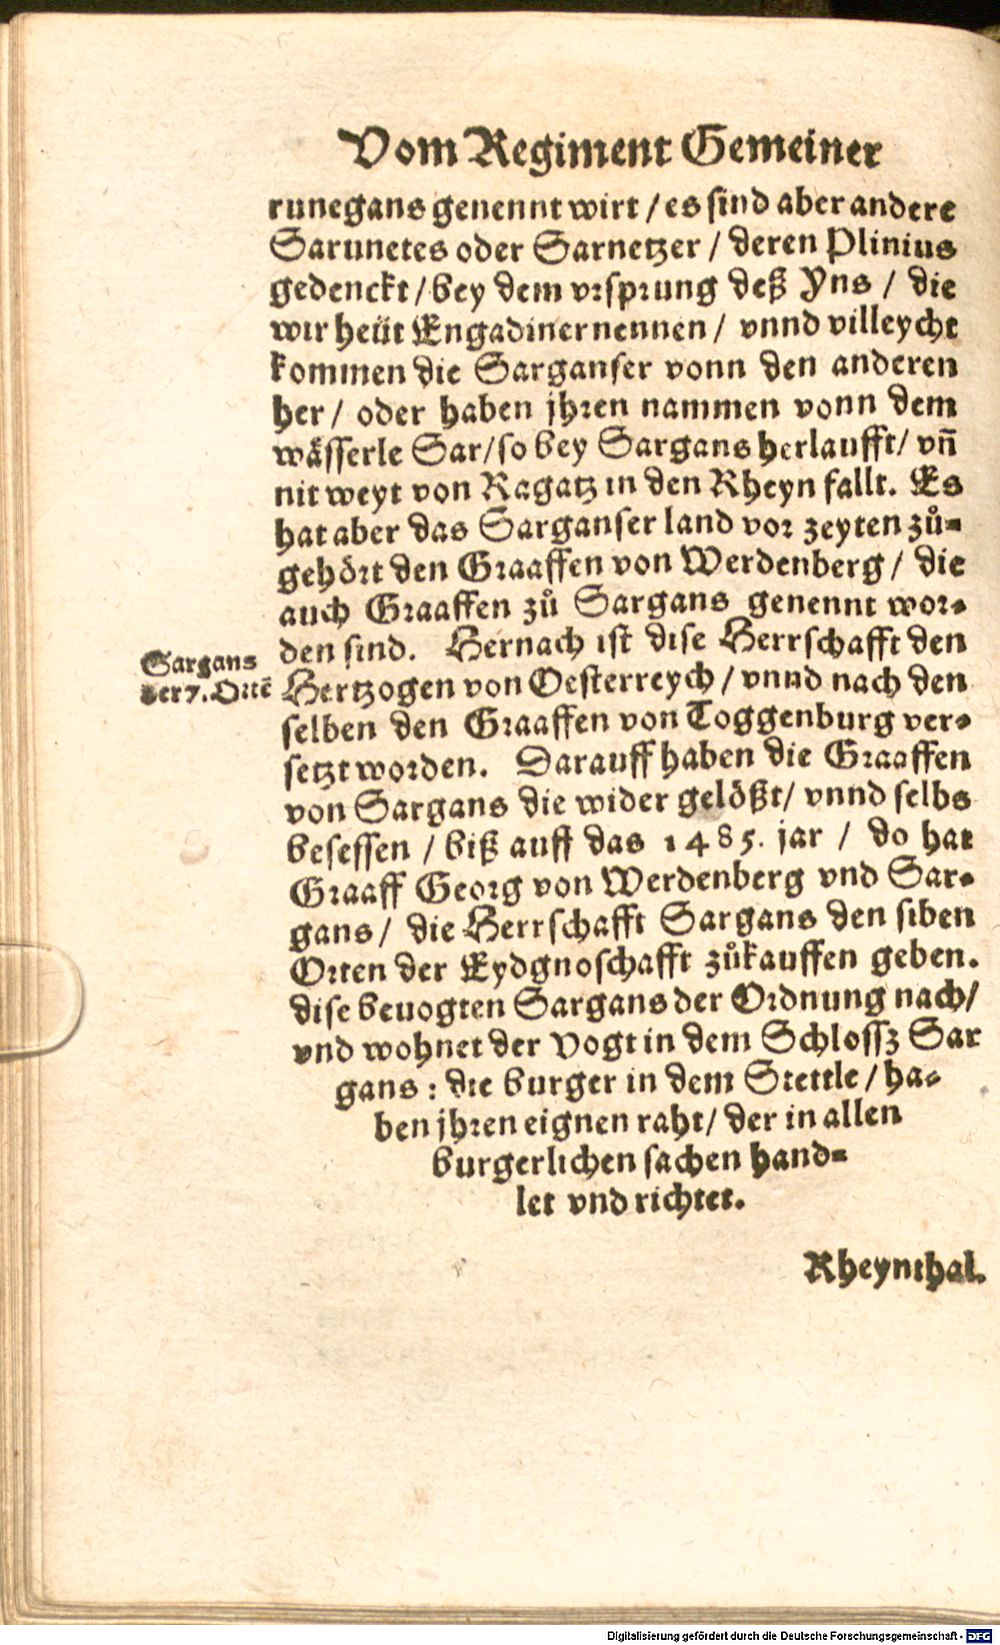 Vom Regiment Gemeiner
runegans genennt wirt / es sind aber andere
Sarunetes oder Sarnetzer / deren Plinius
gedenckt / bey dem vrsprung deß Yns / die
wir heüt Engadiner nennen / vnnd villeycht
kommen die Sarganser vonn den anderen
her / oder haben jhren nammen vonn dem
wässerle Sar / so bey Sargans herlaufft / vñ
nit weyt von Ragatz in den Rheyn fallt. Es
hat aber das Sarganser land vor zeyten zů⸗
gehört den Graaffen von Werdenberg / die
auch Graaffen zů Sargans genennt wor⸗
den sind. Hernach ist dise Herrschafft den
Sargans
der 7. Ortē
Hertzogen von Oesterreych / vnnd nach den
selben den Graaffen von Toggenburg ver⸗
setzt worden. Darauff haben die Graaffen
von Sargans die wider gelößt / vnnd selbs
besessen / biß auff das 1485. jar / do hat
Graaff Georg von Werdenberg vnd Sar⸗
gans / die Herrschafft Sargans den siben
Orten der Eydgnoschafft zůkauffen geben.
dise beuogten Sargans der Ordnung nach /
vnd wohnet der Vogt in dem Schlossz Sar
gans : die burger in dem Stettle / ha⸗
ben jhren eignen raht / der in allen
burgerlichen sachen hand⸗
let vnd richtet.
Rheynthal.
Digitalisierung gefördert durch die Deutsche Forschungsgemeinschaft - DFG